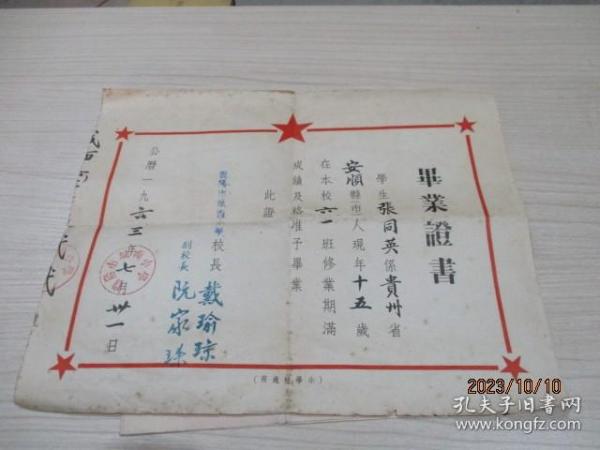 畢業證書
學生張同英係貴州省
安順縣市人現年十五歲
在本校六一班修業期滿
成績及格准予畢業
此證
校長 戴瑜琼
副校長 阮家
公曆一九六三年七月卅一日
2023/10/10
孔夫子旧书网
www.kongfz.com